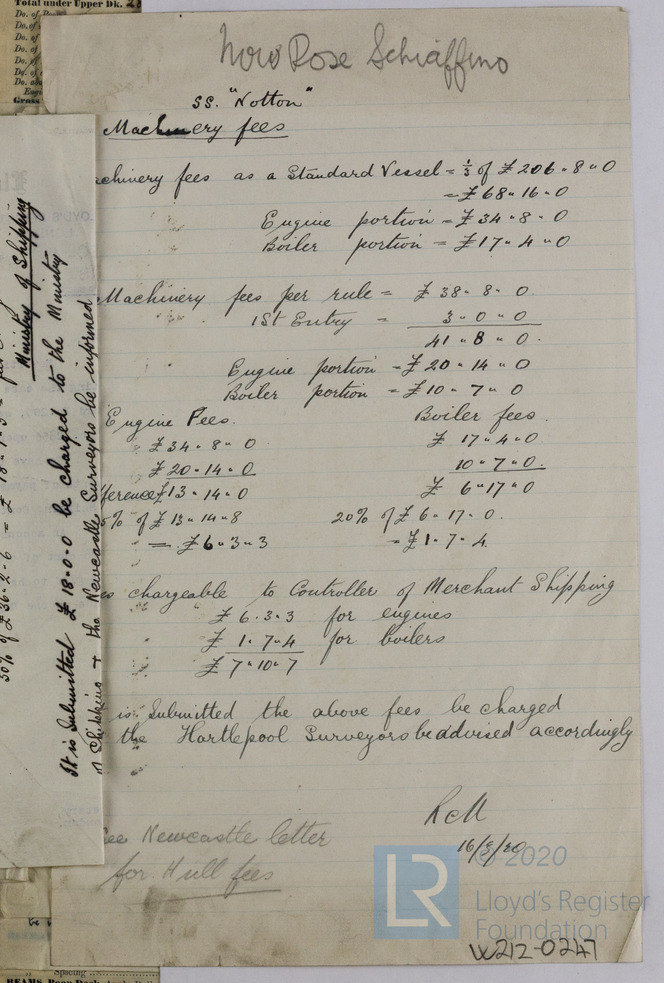 Total under Upper Dk.
Do. of
Do. of
Do. of
Do. of
Do. of
Gross
Now Rose Schiaffino
SS. "Notton"
Machinery fees
achinery fees as a Standard Vessel = 1/3 of £206-8-0
= £68-16-0
" Engine portion = £34-8-0
Boiler portion = £17-4-0
Machinery fees per rule = £38-8-0
" 1st Entry = 3-0-0
41-8-0.
Engine portion = £20-14-0
Boiler portion = £10-7-0
Engine Fees. Boiler fees.
£34-8-0 £17-4-0
£20-14-0 10-7-0.
fference £13-14-0 £6-17-0
5% of £13-14-8 20% of £6-17-0.
= £6-3-3 = £1-7-4.
es chargeable to Controller of Merchant Shipping
£6-3-3 for engines
£1-7-4 for boilers
£7-10-7
is Submitted the above fees be charged
the Hartlepool Surveyors be advised accordingly
RCM
16/ /20
ee Newcastle letter
for Hull fees
50% of £36-2-6 = £18-
Ministry of Shipping
It is Submitted £18-0-0 be charged to the Ministry
of Shipping + the Newcastle Surveyors be informed
© 2020
LR
Lloyd's Register
Foundation
W212-0247
Spacing
BEAMS,